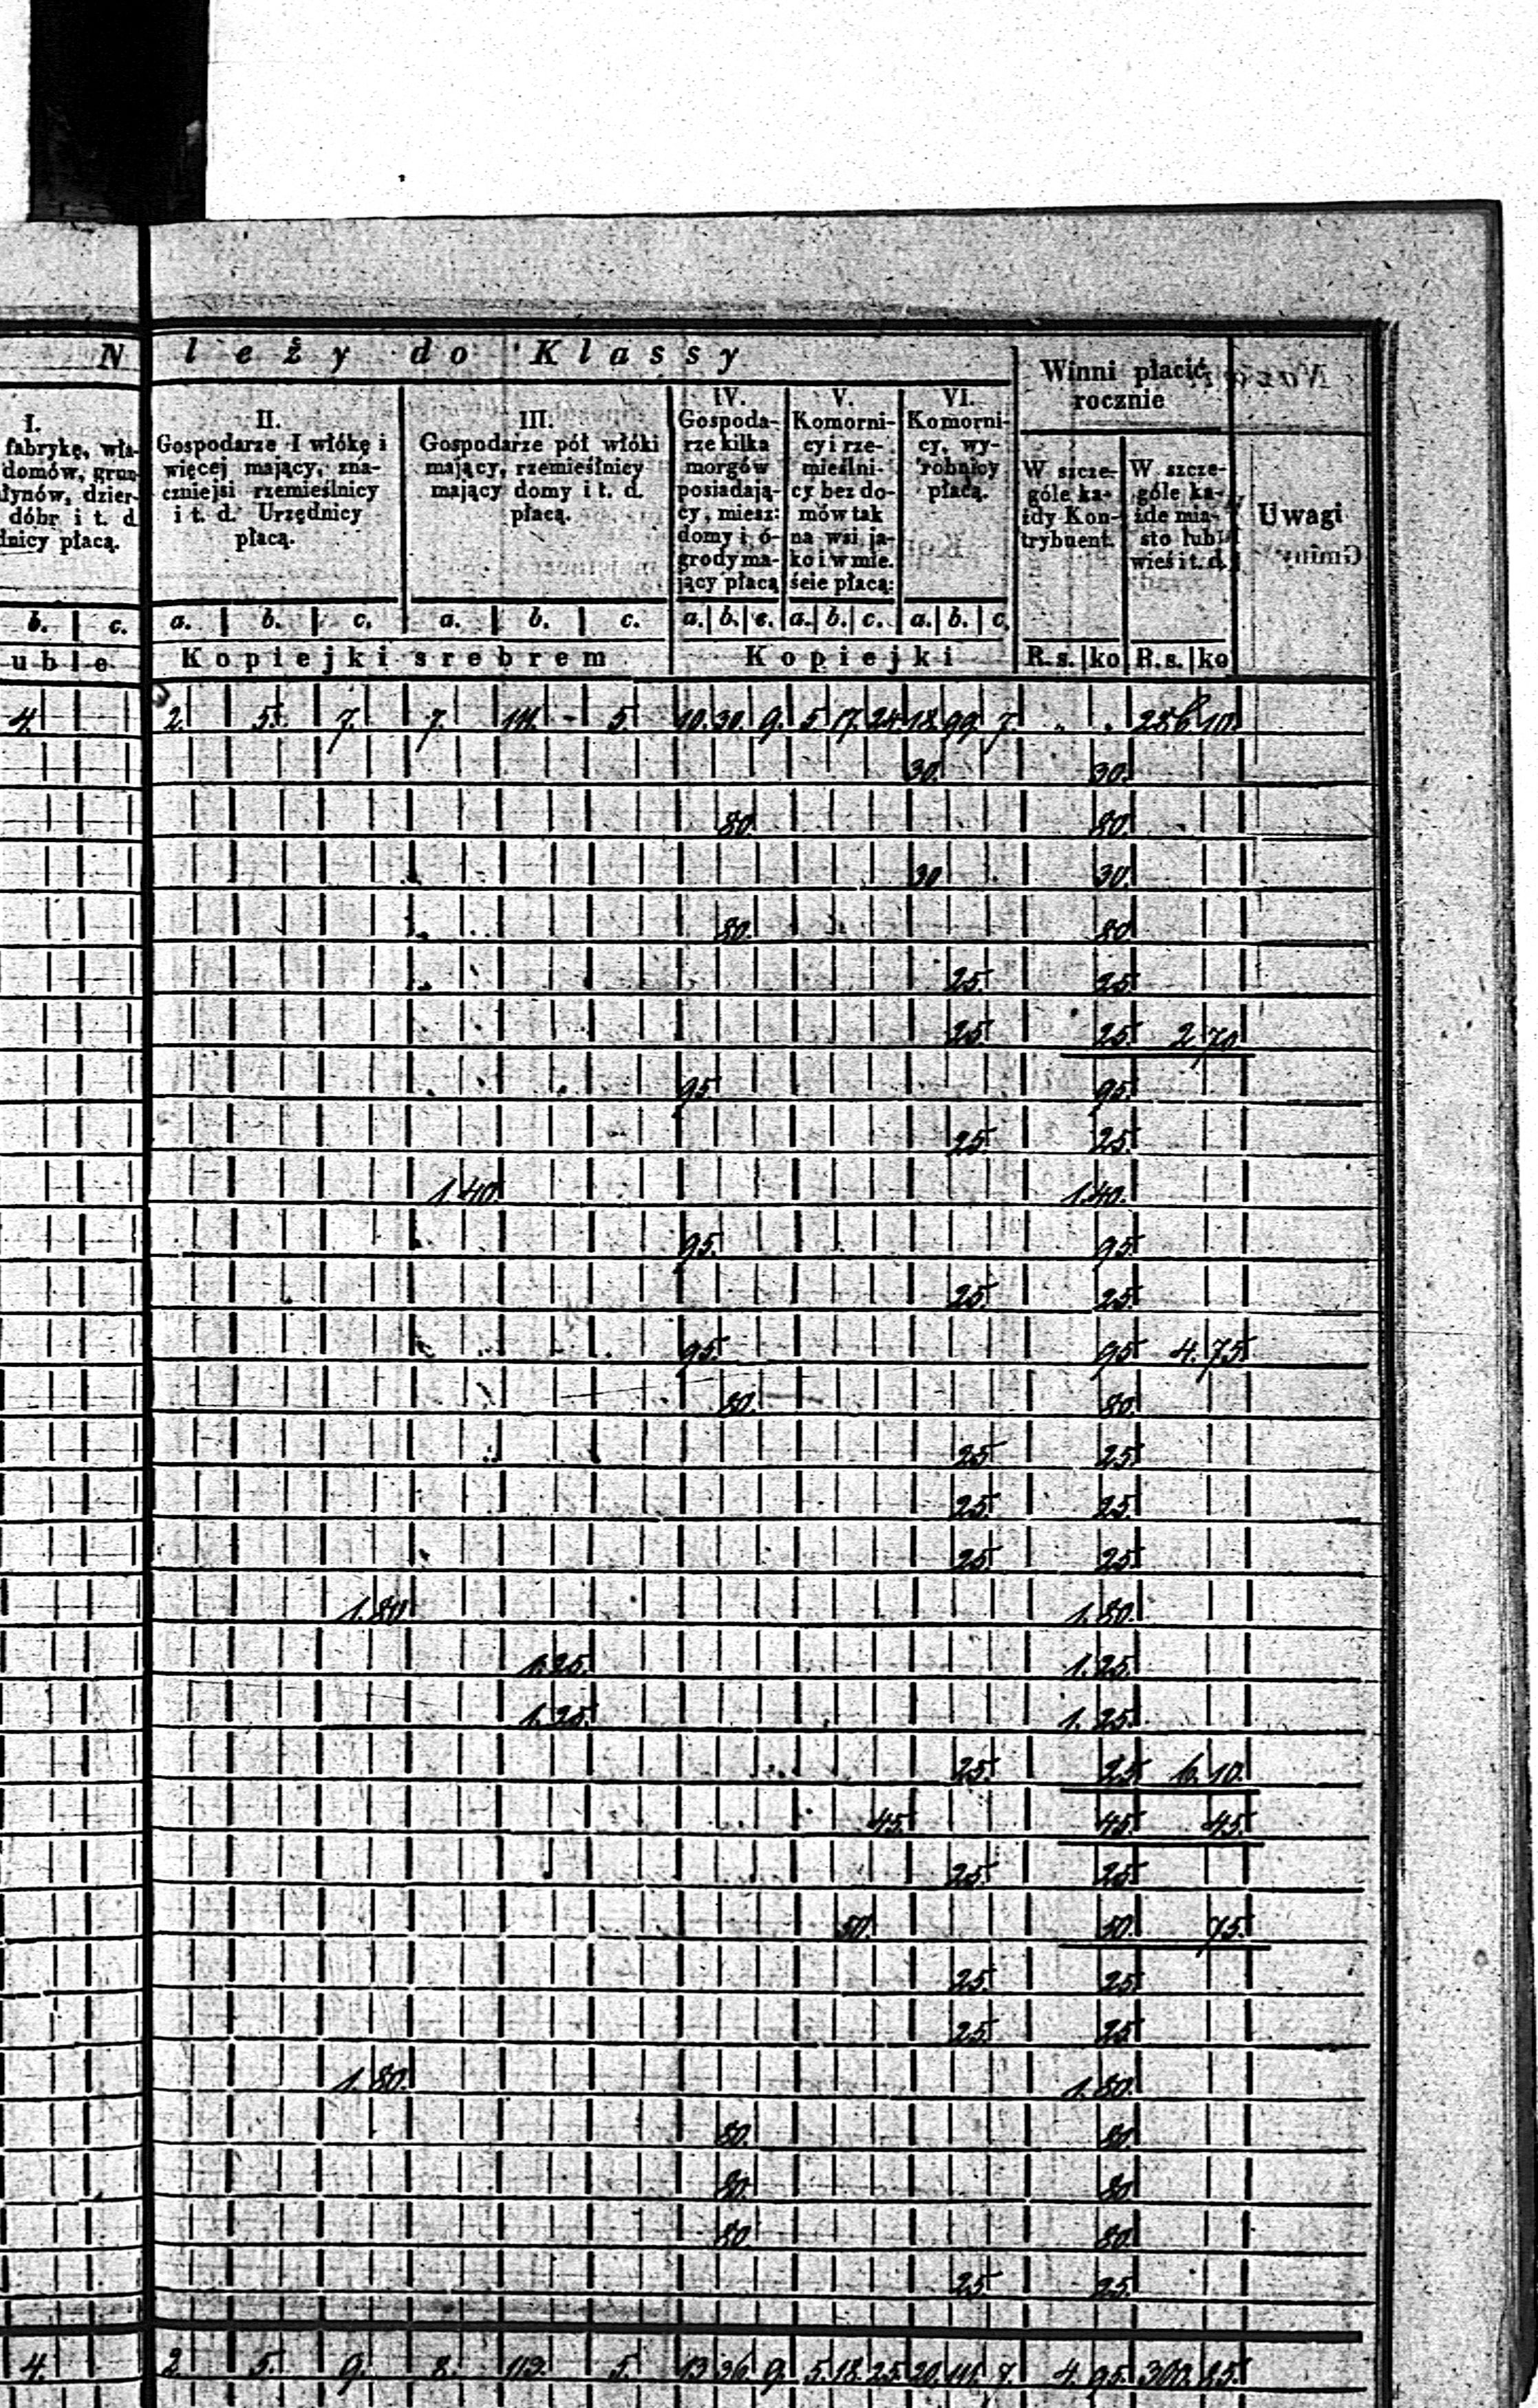 N
l e ż y d o K l a s s y
Winni płacić rocznie
I.
fabrykę, wła-
domów, grun-
łynów, dzier-
dóbr i t. d.
dnicy płacą.
II.
Gospodarze I włókę i
więcej mający, zna-
czniejsi rzemieślnicy
i t. d. Urzędnicy
płacą.
III.
Gospodarze pół włóki
mający, rzemieślnicy
mający domy i t. d.
płacą.
IV.
Gospoda-
rze kilka
morgów
posiadają-
cy, miesz:
domy i o-
grody ma-
jący płacą
V.
Komorni-
cy i rze-
mieślni-
cy bez do-
mów tak
na wsi ja-
ko i w mie.
ście płacą:
VI.
Komorni-
cy, wy-
robnicy
płacą.
W szcze-
góle ka-
żdy Kon-
trybuent.
W szcze-
góle ka-
żde mia-
sto lub
wieś i t. d.
Uwagi
b. c. a. b. c. a. b. c. a. b. c. a. b. c. a. b. c.
uble Kopiejki srebrem Kopiejki R.s. ko R.s. ko
4. 2. 5. 7. 7. 5. 10. 30. 9. 5. 17. 24. 18. 99. 7. 10.
30. 30.
80. 80.
30 30.
80. 80
25. 25
25 25 2 70
95 95.
25. 25.
1.40 1.40.
95. 95
25. 25.
95. 95 4.75
80. 80.
25 25.
25. 25.
25. 25
1.80 1.80.
1.25. 1.25.
1.25 1.25
25. 25 6.10.
45. 45. 45.
25 25
50. 50. 75.
25. 25
25. 25
1.80. 1.80.
80. 80.
80. 80
80. 80.
25. 25.
4. 2 5. 9. 8. 113. 5. 13 36 9. 5. 18. 25. 20. 111. 7. 4. 95. 25.